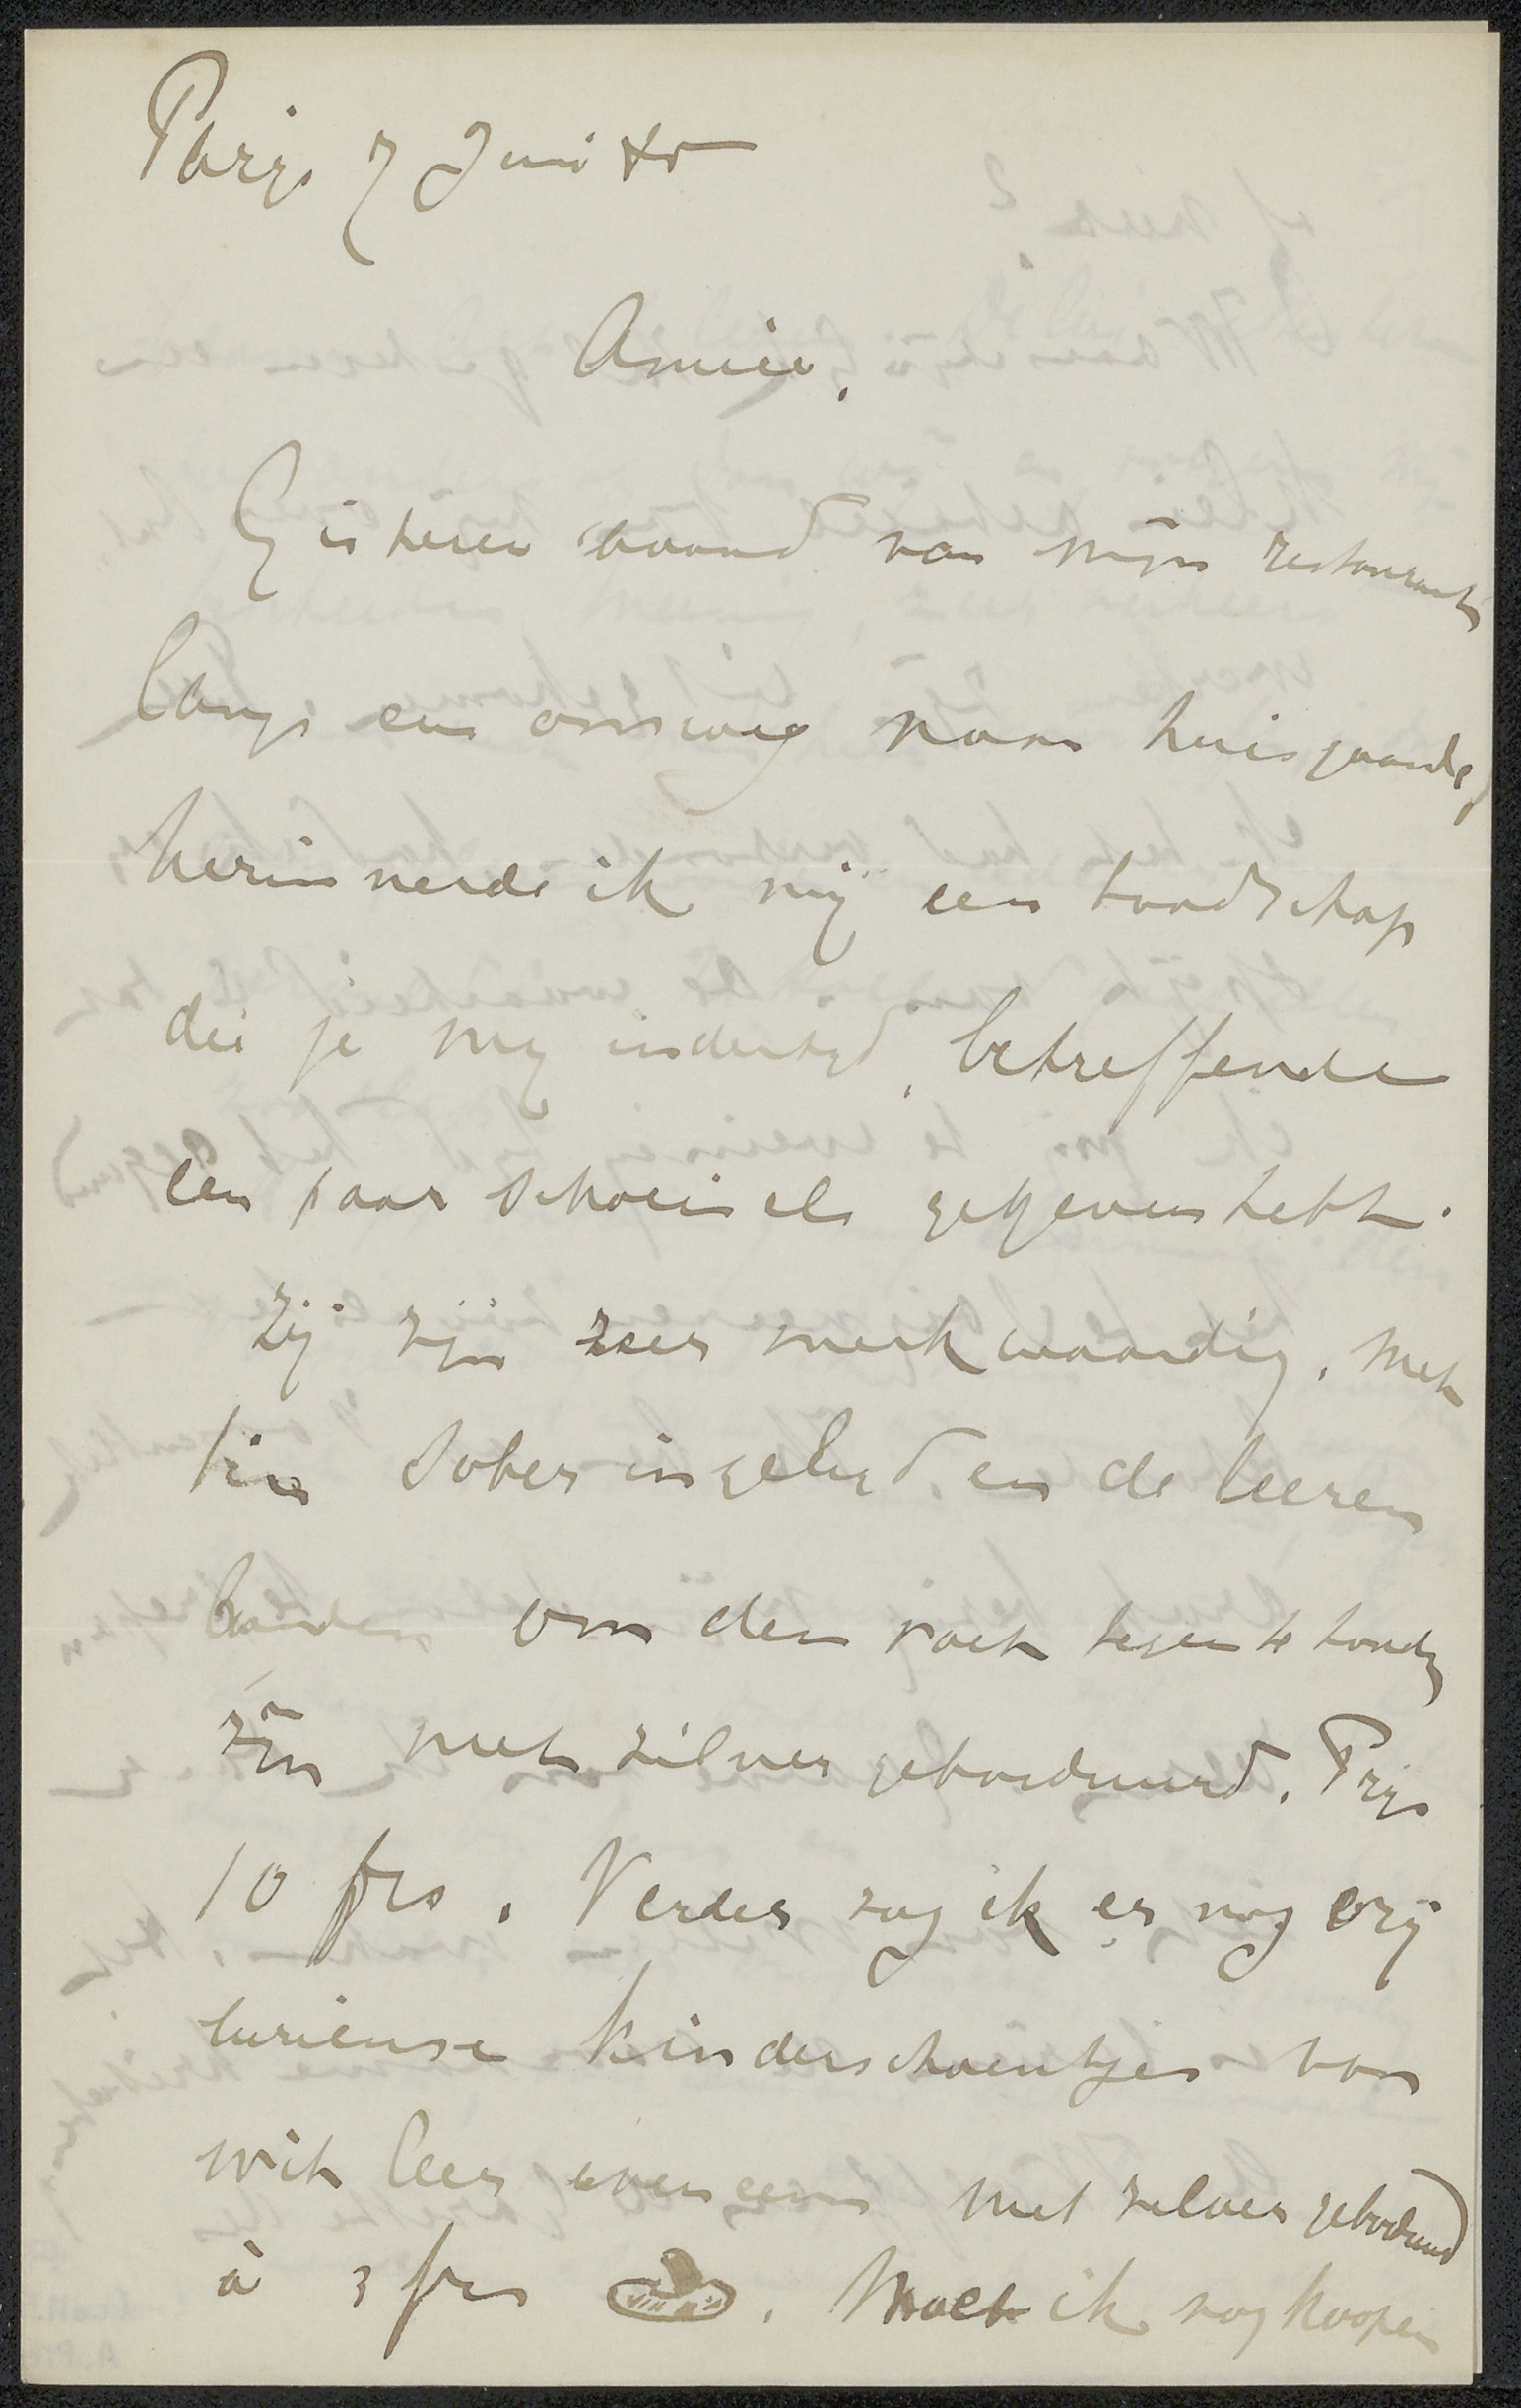 Parijs 7 Juni
Amice,
Gisteren avond van mijn restaurant
langs een omweg naar huis gaande,
herinnerde ik mij een boodschap
die je mij indertijd, betreffende
een paar schoeisels gegeven hebt.
Zij zijn zeer merkwaardig. Met
tin sober ingelegd en de leeren
banden om den voet tegen te houden
zijn met zilver geborduurd. Prijs
10 frs. Verder zag ik er nog
curieuse kinderschoentjes van
wit leer eveneens met zilver geborduurd
à 3 frs . Moet ik nog koopen